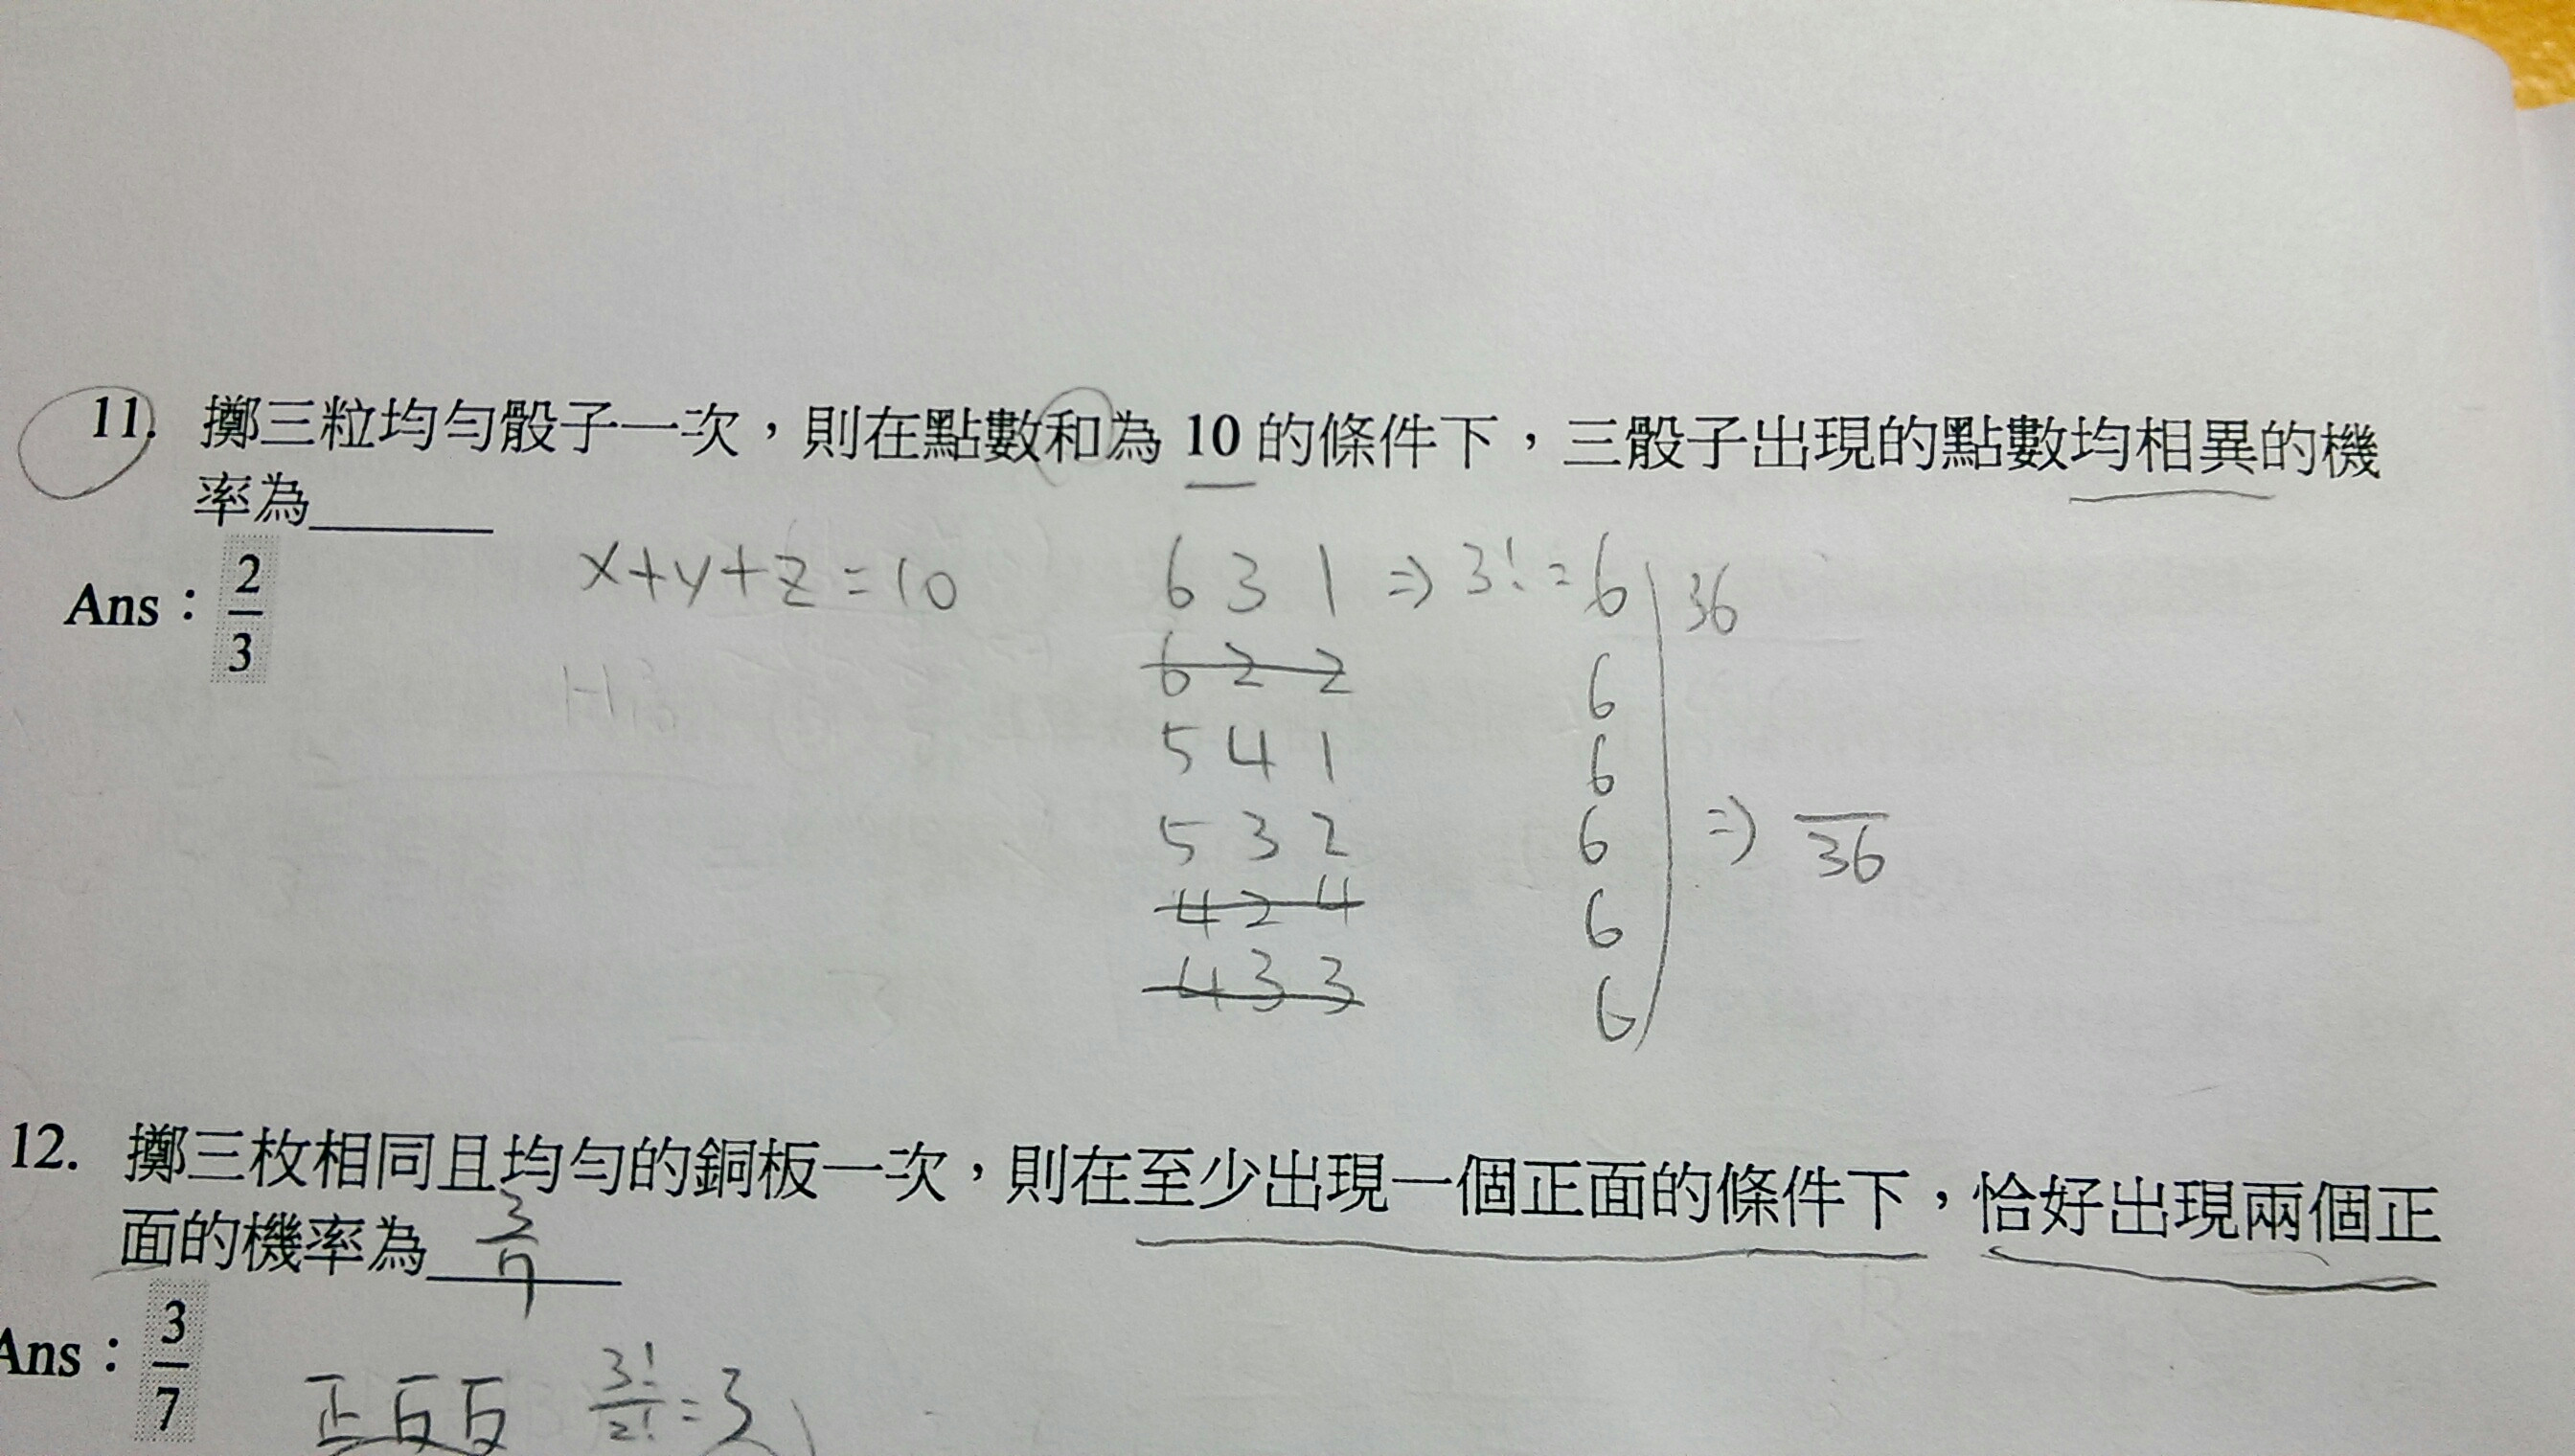 11. 擲三粒均勻骰子一次，則在點數和為 10 的條件下，三骰子出現的點數均相異的機
率為______
Ans：2/3
x+y+z=10
6 3 1 ⇒ 3! = 6 36
6 2 2 6
5 4 1 6
5 3 2 6 ⇒ /36
4 2 4 6
4 3 3 6
12. 擲三枚相同且均勻的銅板一次，則在至少出現一個正面的條件下，恰好出現兩個正
面的機率為 3/7
Ans：3/7
正反反 3!/2! = 3